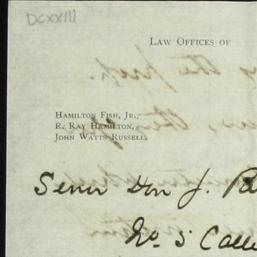 DCXXIII
LAW OFFICES OF
HAMILTON FISH, JR.,
R. RAY HAMILTON,
JOHN WATTS RUSSELL.
Senor Don J.
No. 5 Calle